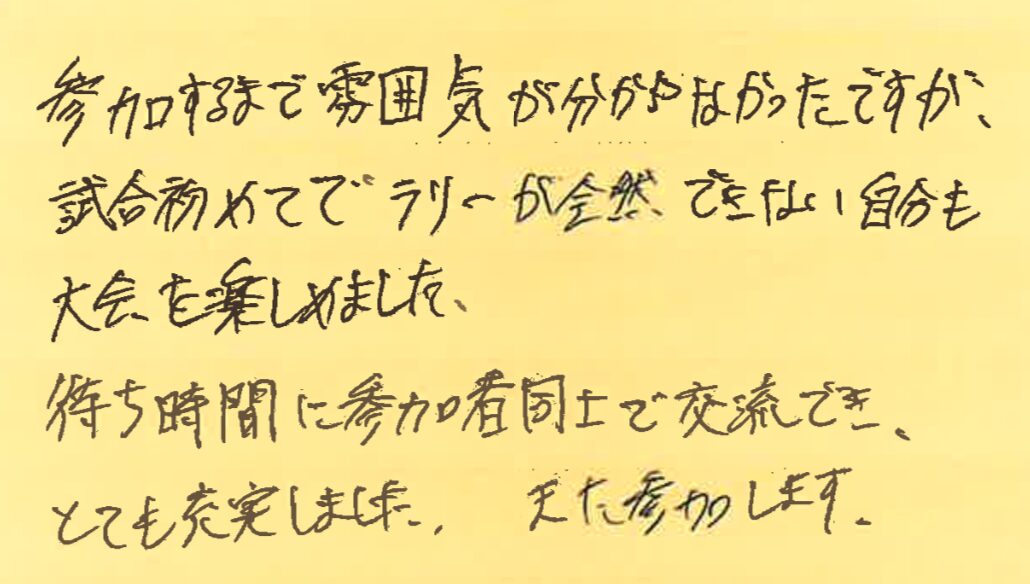 参加するまで雰囲気が分からなかったですが、
試合初めてでラリーが全然、できない自分も
大会を楽しめました、
待ち時間に参加者同士で交流でき、
とても充実しました。 また参加します。